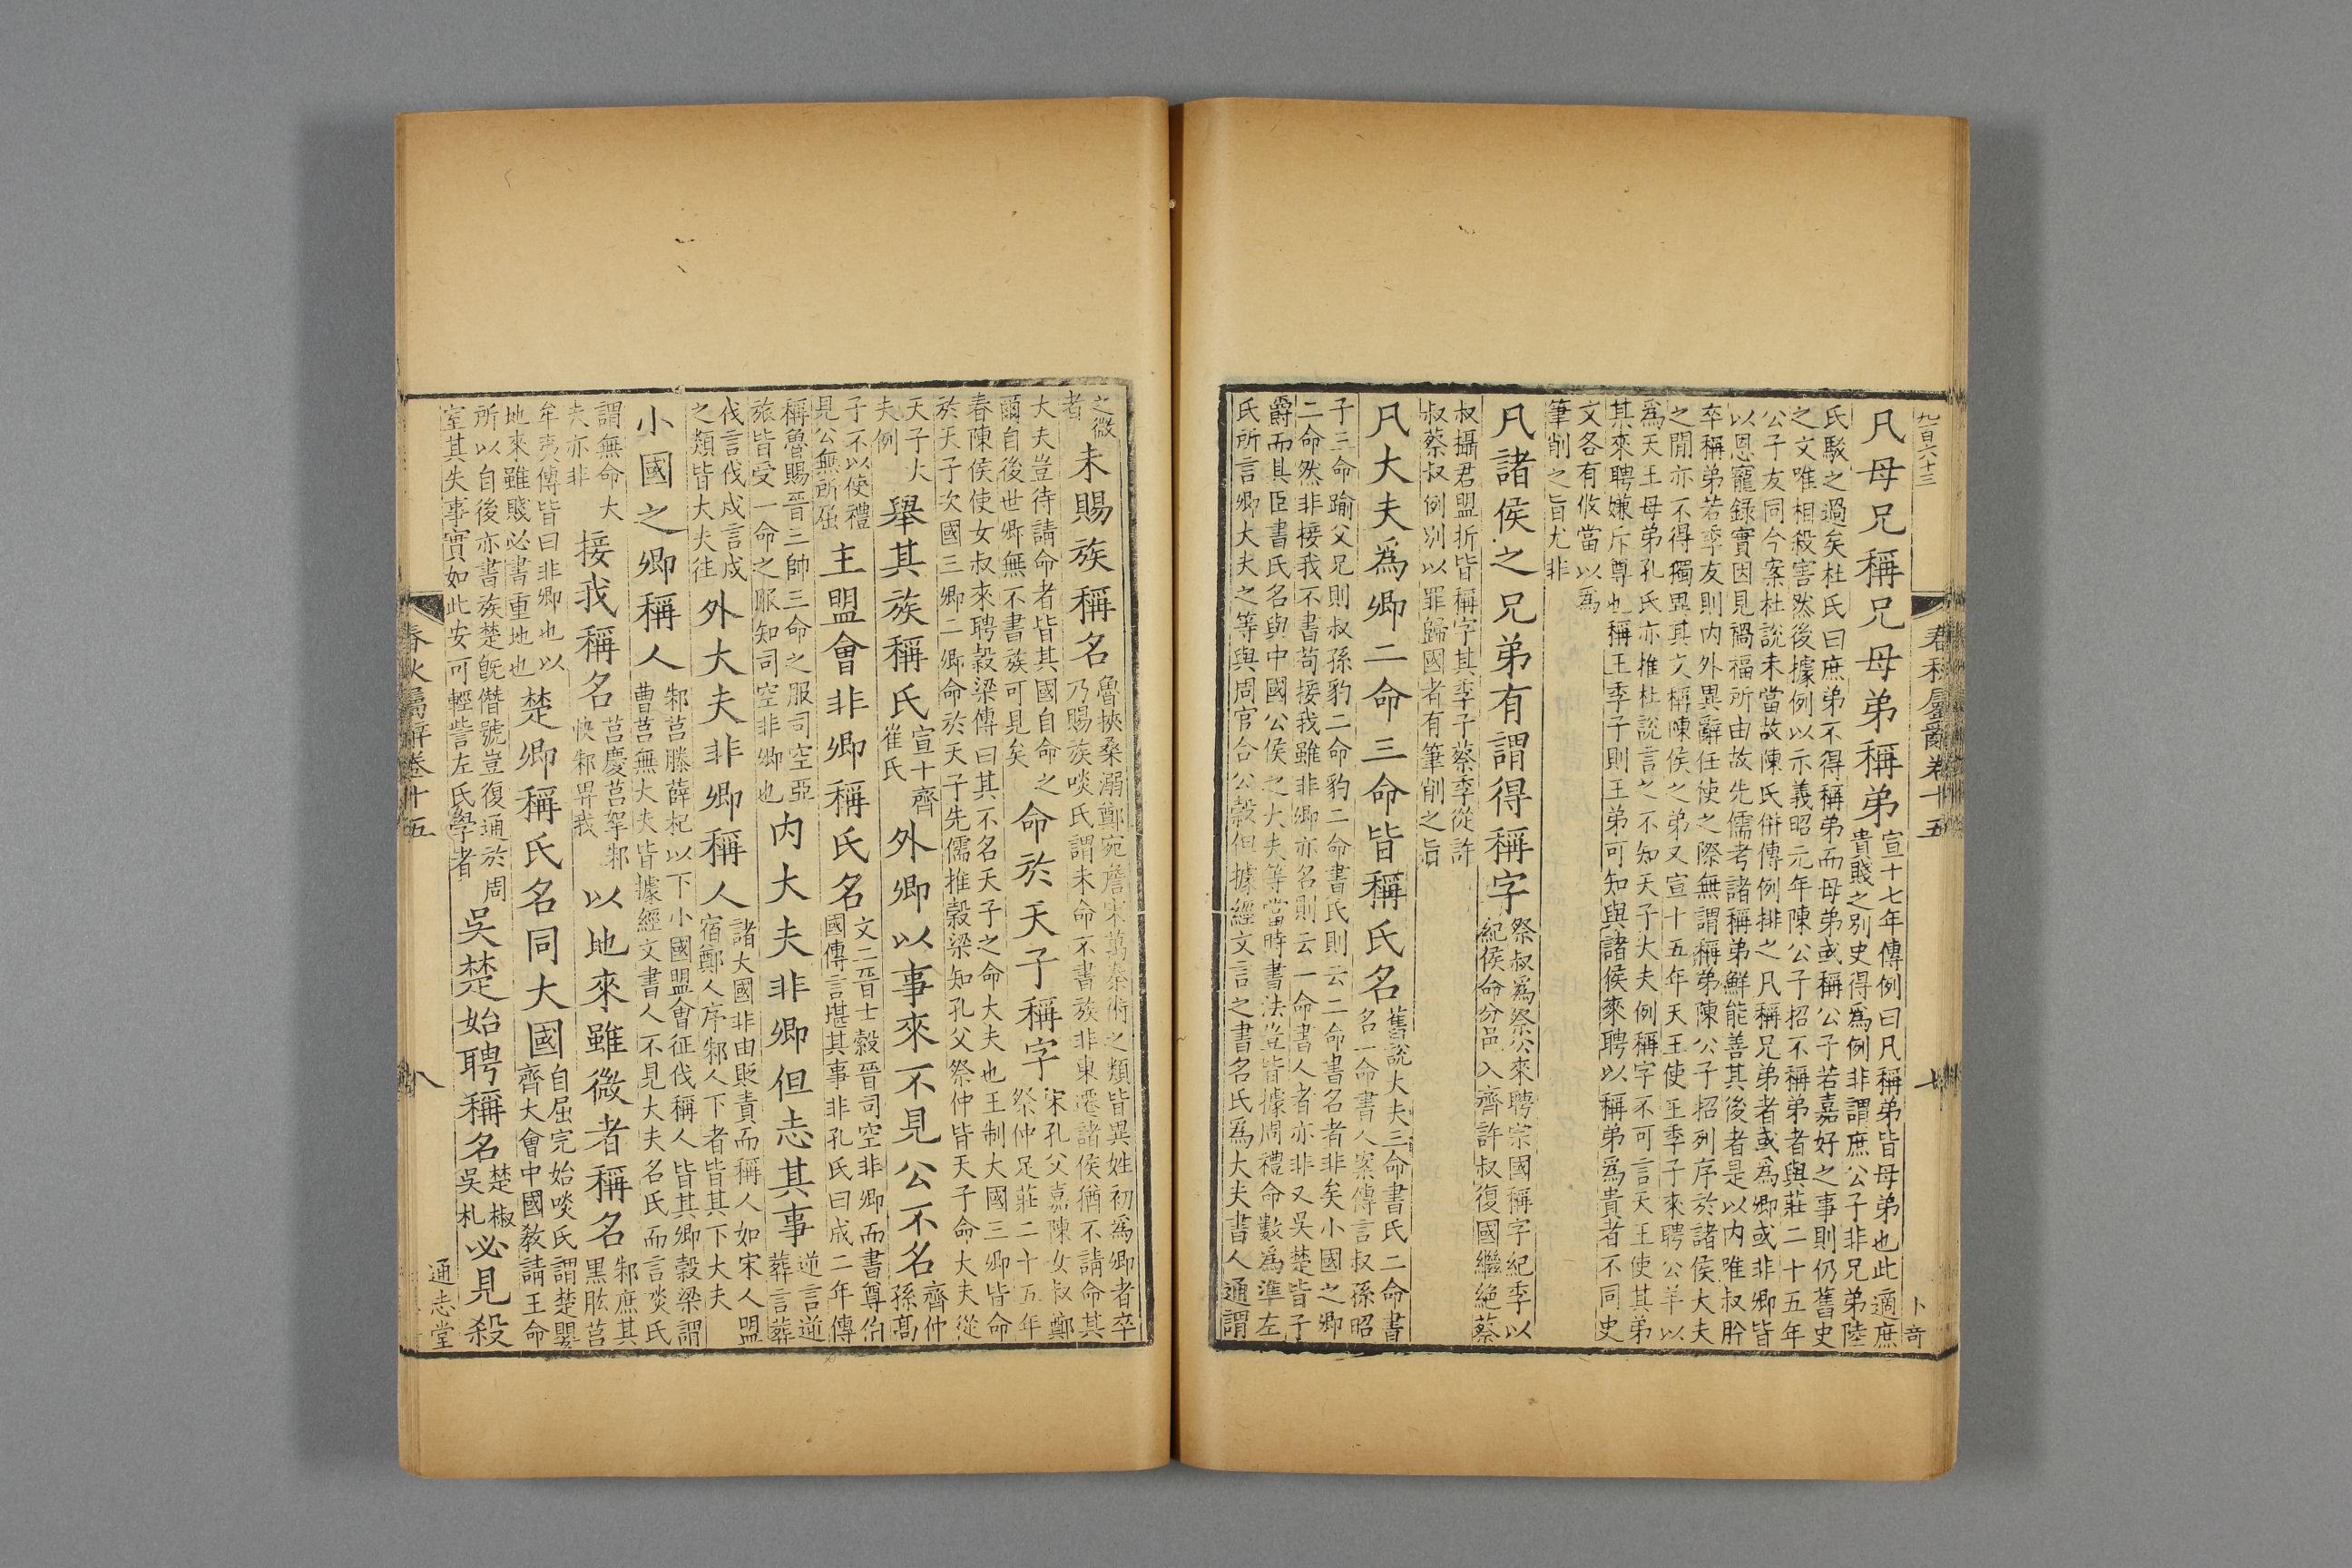 九百六十三
春秋屬辭卷十五
七
卜奇
凡母兄稱兄母弟稱弟宣十七年傳例曰凡稱弟皆母弟也此適庶
貴賤之別史得為例非謂庶公子非兄弟陸
氏駁之過矣杜氏曰庶弟不得稱弟而母弟或稱公子若嘉好之事則仍舊史
之文唯相殺害然後據例以示義昭元年陳公子招不稱弟者與莊二十五年
公子友同今案杜說未當故陳氏併傳例排之凡稱兄弟者或為卿或非卿皆
以恩寵錄實因見禍福所由故先儒考諸稱弟鮮能善其後者是以內唯叔肸
卒稱弟若季友則內外異辭任使之際無謂稱弟陳公子招列序於諸侯大夫
之閒亦不得獨異其文稱陳侯之弟又宣十五年天王使王季子來聘公羊以
為天王母弟孔氏亦推杜說言之不知天子大夫例稱字不可言天王使其弟
其來聘嫌斥尊也稱王季子則王弟可知與諸侯來聘以稱弟為貴者不同史
文各有攸當以為
筆削之旨尤非
凡諸侯之兄弟有謂得稱字祭叔為祭公來聘宗國稱字紀季以
紀侯命分邑入齊許叔復國繼絕蔡
叔攝君盟折皆稱字其季子蔡季從許
叔蔡叔例別以罪歸國者有筆削之旨
凡大夫為卿二命三命皆稱氏名舊說大夫三命書氏二命書
名一命書人案傳言叔孫昭
子三命踰父兄則叔孫豹二命豹二命書氏則云二命書名者非矣小國之卿
二命然非接我不書苟接我雖非卿亦名則云一命書人者亦非又吳楚皆子
爵而其臣書氏名與中國公侯之大夫等當時書法豈皆據周禮命數為準左
氏所言卿大夫之等與周官合公穀但據經文言之書名氏為大夫書人通謂
之微
者未賜族稱名魯挾柔溺鄭宛詹宋萬秦術之類皆異姓初為卿者卒
乃賜族啖氏謂未命不書族非東遷諸侯猶不請命其
大夫豈待請命者皆其國自命之
爾自後世卿無不書族可見矣命於天子稱字宋孔父嘉陳女叔鄭
祭仲足莊二十五年
春陳侯使女叔來聘穀梁傳曰其不名天子之命大夫也王制大國三卿皆命
於天子次國三卿二卿命於天子先儒推穀梁知孔父祭仲皆天子命大夫從
天子大
夫例舉其族稱氏宣十齊
崔氏外卿以事來不見公不名齊仲
孫高
子不以使禮
見公無所屈主盟會非卿稱氏名文二晉士縠晉司空非卿而書尊伯
國傳言堪其事非孔氏曰成二年傳
稱魯賜晉三帥三命之服司空亞
旅皆受一命之服知司空非卿也內大夫非卿但志其事逆言逆
葬言葬
伐言伐戍言戍
之類皆大夫往外大夫非卿稱人諸大國非由貶責而稱人如宋人盟
宿鄭人序邾人下者皆其下大夫
小國之卿稱人邾莒滕薛杞以下小國盟會征伐稱人皆其卿穀梁謂
曹莒無大夫皆據經文書人不見大夫名氏而言啖氏
謂無命大
夫亦非接我稱名莒慶莒挐邾
快邾畀我以地來雖微者稱名邾庶其
黑肱莒
牟夷傳皆曰非卿也以
地來雖賤必書重地也楚卿稱氏名同大國自屈完始啖氏謂楚嬰
齊大會中國敎請王命
所以自後亦書族楚旣僭號豈復通於周
室其失事實如此安可輕訾左氏學者吳楚始聘稱名楚椒
吳札必見殺
春秋屬辭卷十五
八
通志堂